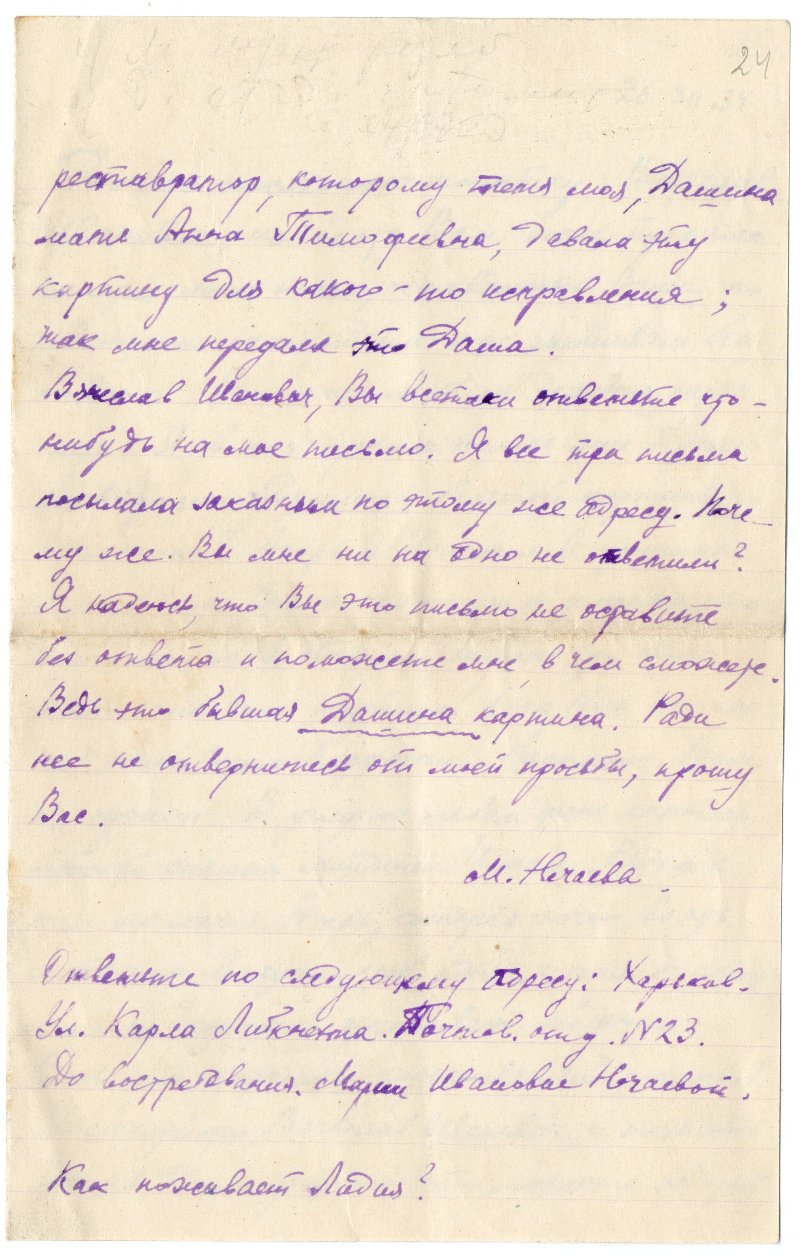 24
реставратор, которому тетя моя, Дашина
мать Анна Тимофеевна, давала эту
картину для какого-то исправления;
так мне передала это Даша.
Вячеслав Иванович, Вы всетаки ответьте что-
нибудь на мое письмо. Я все три письма
посылала заказным по этому же адресу. Поче-
му же. Вы мне ни на одно не ответили?
Я надеюсь, что Вы это письмо не оставите
без ответа и поможете мне, в чем сможете.
Ведь это бывшая Дашина картина. Ради
нее не отвернитесь от моей просьбы, прошу
Вас.
М. Нечаева.
Ответьте по следующему адресу: Харьков.
Ул. Карла Либкнехта. Почтов. отд. N23.
До востребования. Марии Ивановне Нечаевой.
Как поживает Лидия?